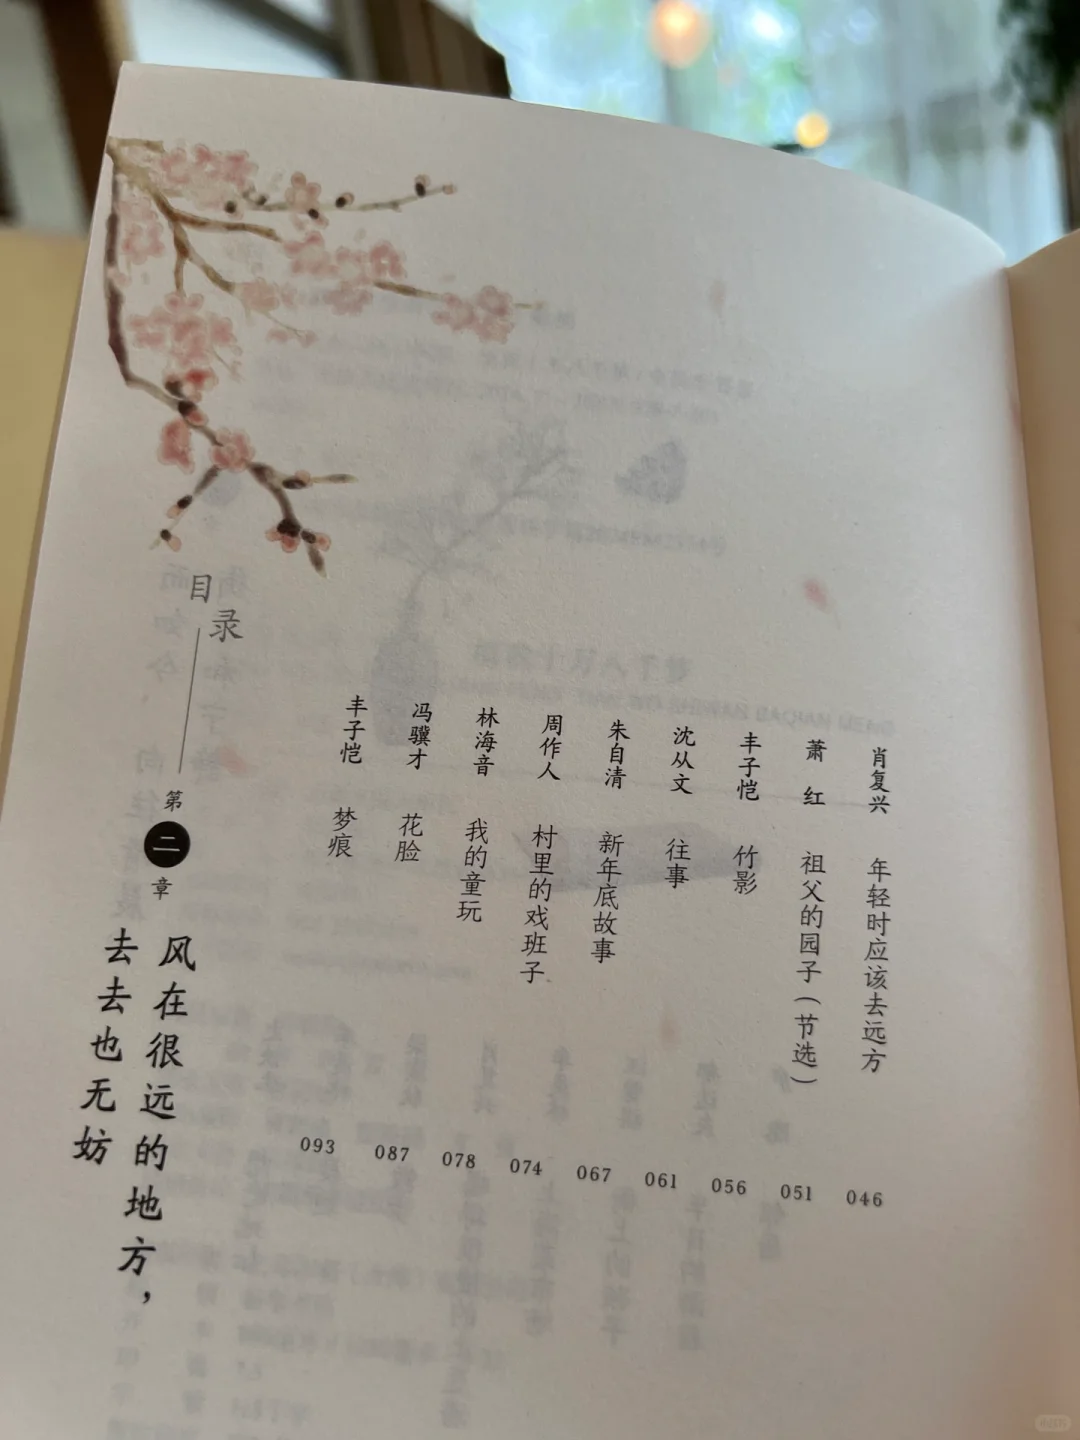 目录
肖复兴 年轻时应该去远方 046
萧 红 祖父的园子（节选） 051
丰子恺 竹影 056
沈从文 往事 061
朱自清 新年底故事 067
周作人 村里的戏班子 074
林海音 我的童玩 078
冯骥才 花脸 087
丰子恺 梦痕 093
第二章
风在很远的地方，
去去也无妨